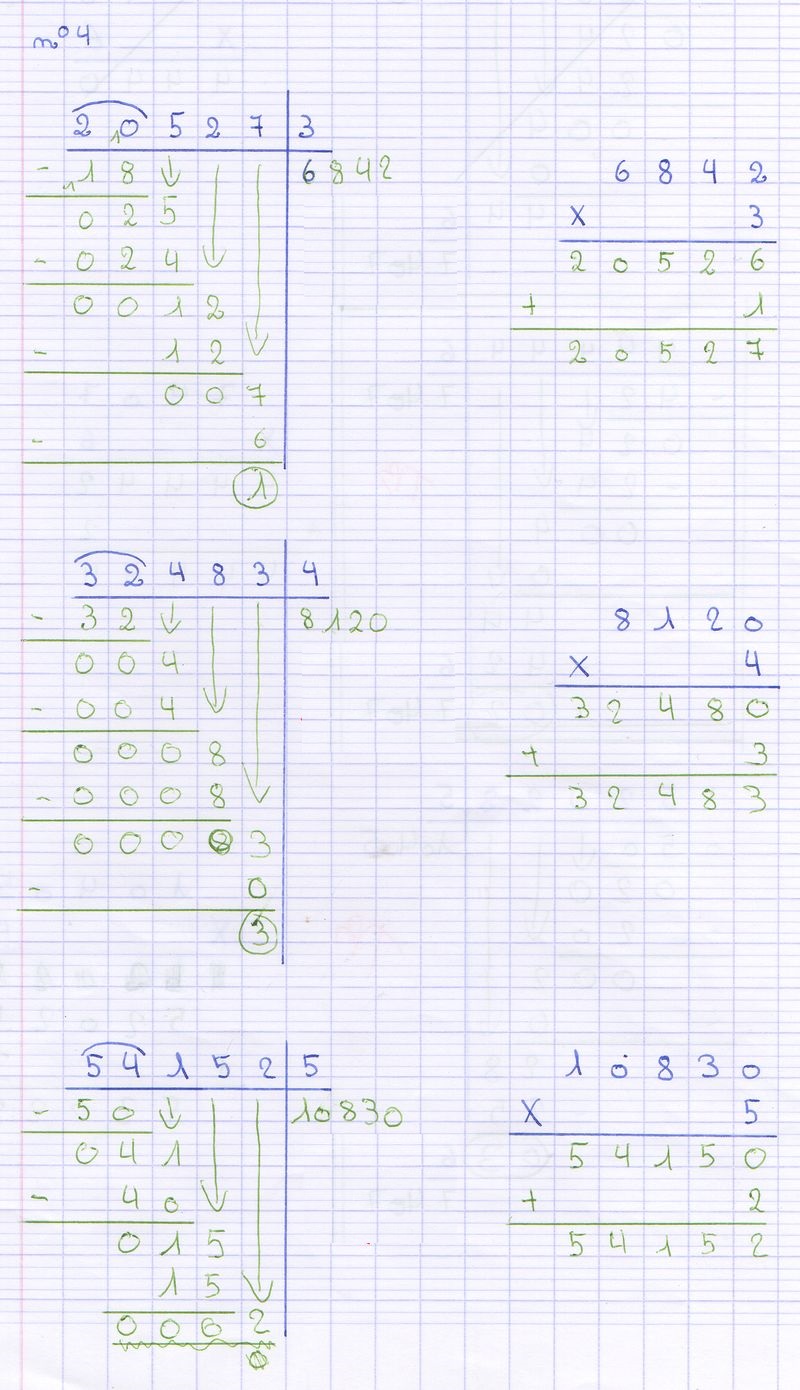 n°4
2 0 5 2 7 | 3
- 1 8 | 6842
0 2 5
- 0 2 4
0 0 1 2
- 1 2
0 0 7
- 6
1
6 8 4 2
X 3
2 0 5 2 6
+ 1
2 0 5 2 7
3 2 4 8 3 | 4
- 3 2 | 8120
0 0 4
- 0 0 4
0 0 0 8
- 0 0 0 8
0 0 0 0 3
- 0
3
8 1 2 0
X 4
3 2 4 8 0
+ 3
3 2 4 8 3
5 4 1 5 2 | 5
- 5 0 | 10830
0 4 1
- 4 0
0 1 5
1 5
0 0 0 2
0
1 0 8 3 0
X 5
5 4 1 5 0
+ 2
5 4 1 5 2